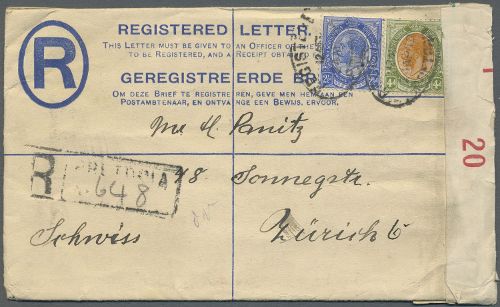 REGISTERED LETTER.
THIS LETTER MUST BE GIVEN TO AN OFFICER OF THE
TO BE REGISTERED, AND A RECEIPT OBTAI
R
GEREGISTREERDE B
OM DEZE BRIEF TE REGISTREREN, GEVE MEN HEM AAN EEN
POSTAMBTENAAR, EN ONTVANGE EEN BEWIJS, ERVOOR.
20
R
PRETORIA
648
48. Sonnegstr.
Schwiss
Zürich 6